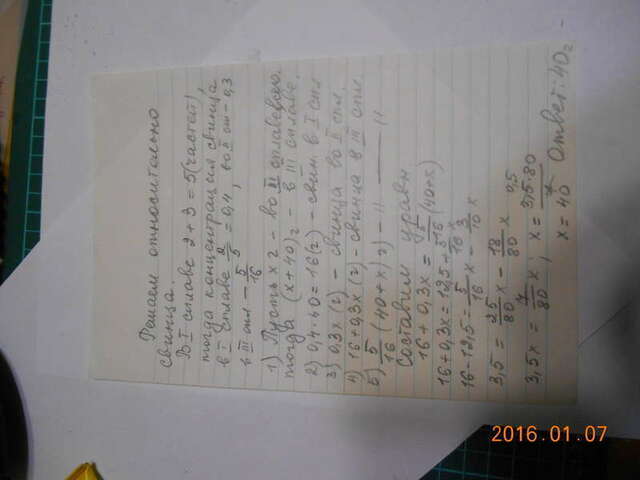 Решаем относительно
свинца.
В I сплаве 2+3=5(частей),
тогда концентрация свинца
в I сплаве 2/5 = 0,4, во II спл - 0,3
в III спл - 5/16
1) Пусть x г - во II сплаве было.
тогда (x+40) г - в III сплаве.
2) 0,4·40=16(г) - свин. в I спл
3) 0,3x (г) - свинца во II спл.
4) 16+0,3x (г) - свинца в III спл.
5) 5/16 (40+x) г) - 11 - 11
Составим уравн
16+0,3x = 5/16 (40+x)
16+0,3x = 12,5 + 5/16 x
16-12,5 = 5/16 x - 3/10 x
3,5 = 25/80 x - 18/80 x
3,5x = 7/80 x, x = 3,5·80/7 0,5
x = 40 Ответ: 40г
2016.01.07